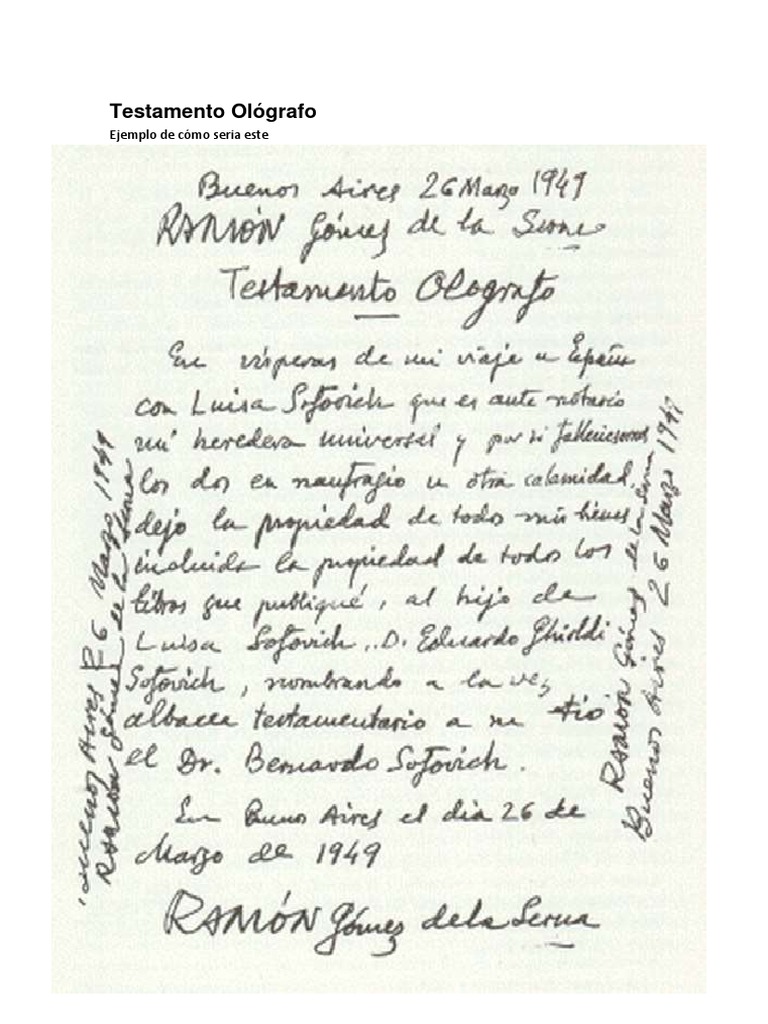 Testamento Ológrafo
Ejemplo de cómo seria este
Buenos Aires 26 Marzo 1949
RAMÓN Gómez de la Serna
Testamento Ológrafo
En vísperas de mi viaje a España
con Luisa Sofovich que es ante notario
mi heredera universal y por si falleciesemos
los dos en naufragio u otra calamidad,
dejo la propiedad de todos mis bienes
incluida la propiedad de todos los
libros que publiqué, al hijo de
Luisa Sofovich, D. Eduardo Ghioldi
Sofovich, nombrando a la vez
albacea testamentario a su tío
el Dr. Bernardo Sofovich.
En Buenos Aires el dia 26 de
Marzo de 1949
RAMÓN Gómez de la Serna
Buenos Aires 26 Marzo 1949
RAMÓN Gómez de la Serna
RAMÓN Gómez de la Serna
Buenos Aires 26 Marzo 1949